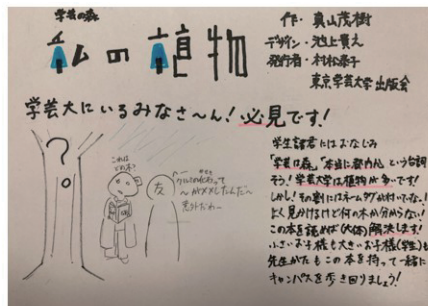 学芸の森
私の植物
作・真山茂樹
デザイン・池上貴之
発行者・村松泰子
東京学芸大学出版会
学芸大にいるみなさ〜ん！必見です！
？
これは
どの木？
友
学生諸君にはおなじみ
「学芸の森」「本当に森やん」という台詞
そう！学芸大学は植物が多いです！
しかし！その割にはネームタグが付いてない！
よく見かけるけど何の木か分からない！
この本を読めば(大体)解決します！
小さいお子様も大きいお子様(学生)も
先生がたもこの本を持って一緒に
キャンパスを歩き回りましょう！